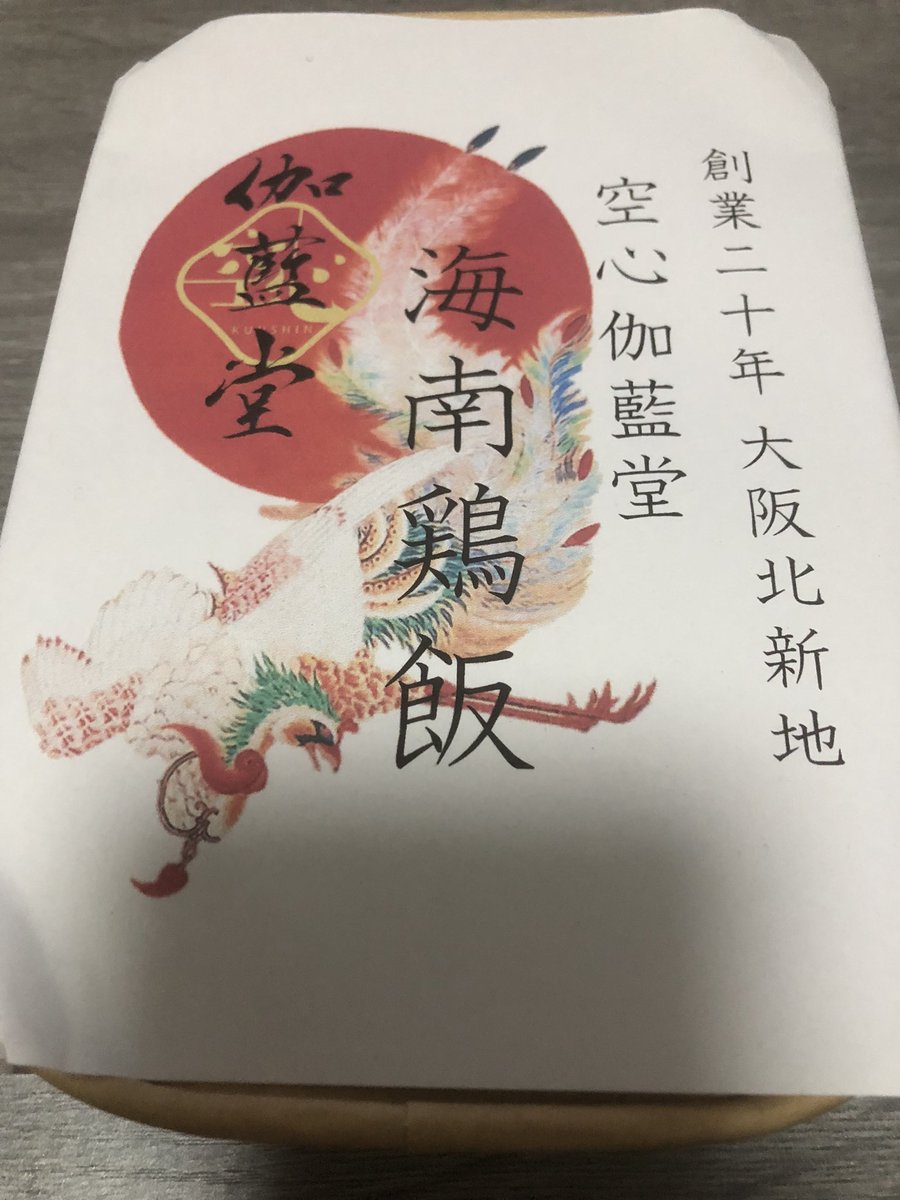 創業二十年 大阪北新地
空心伽藍堂
海南鶏飯
伽藍堂
KUUSHIN